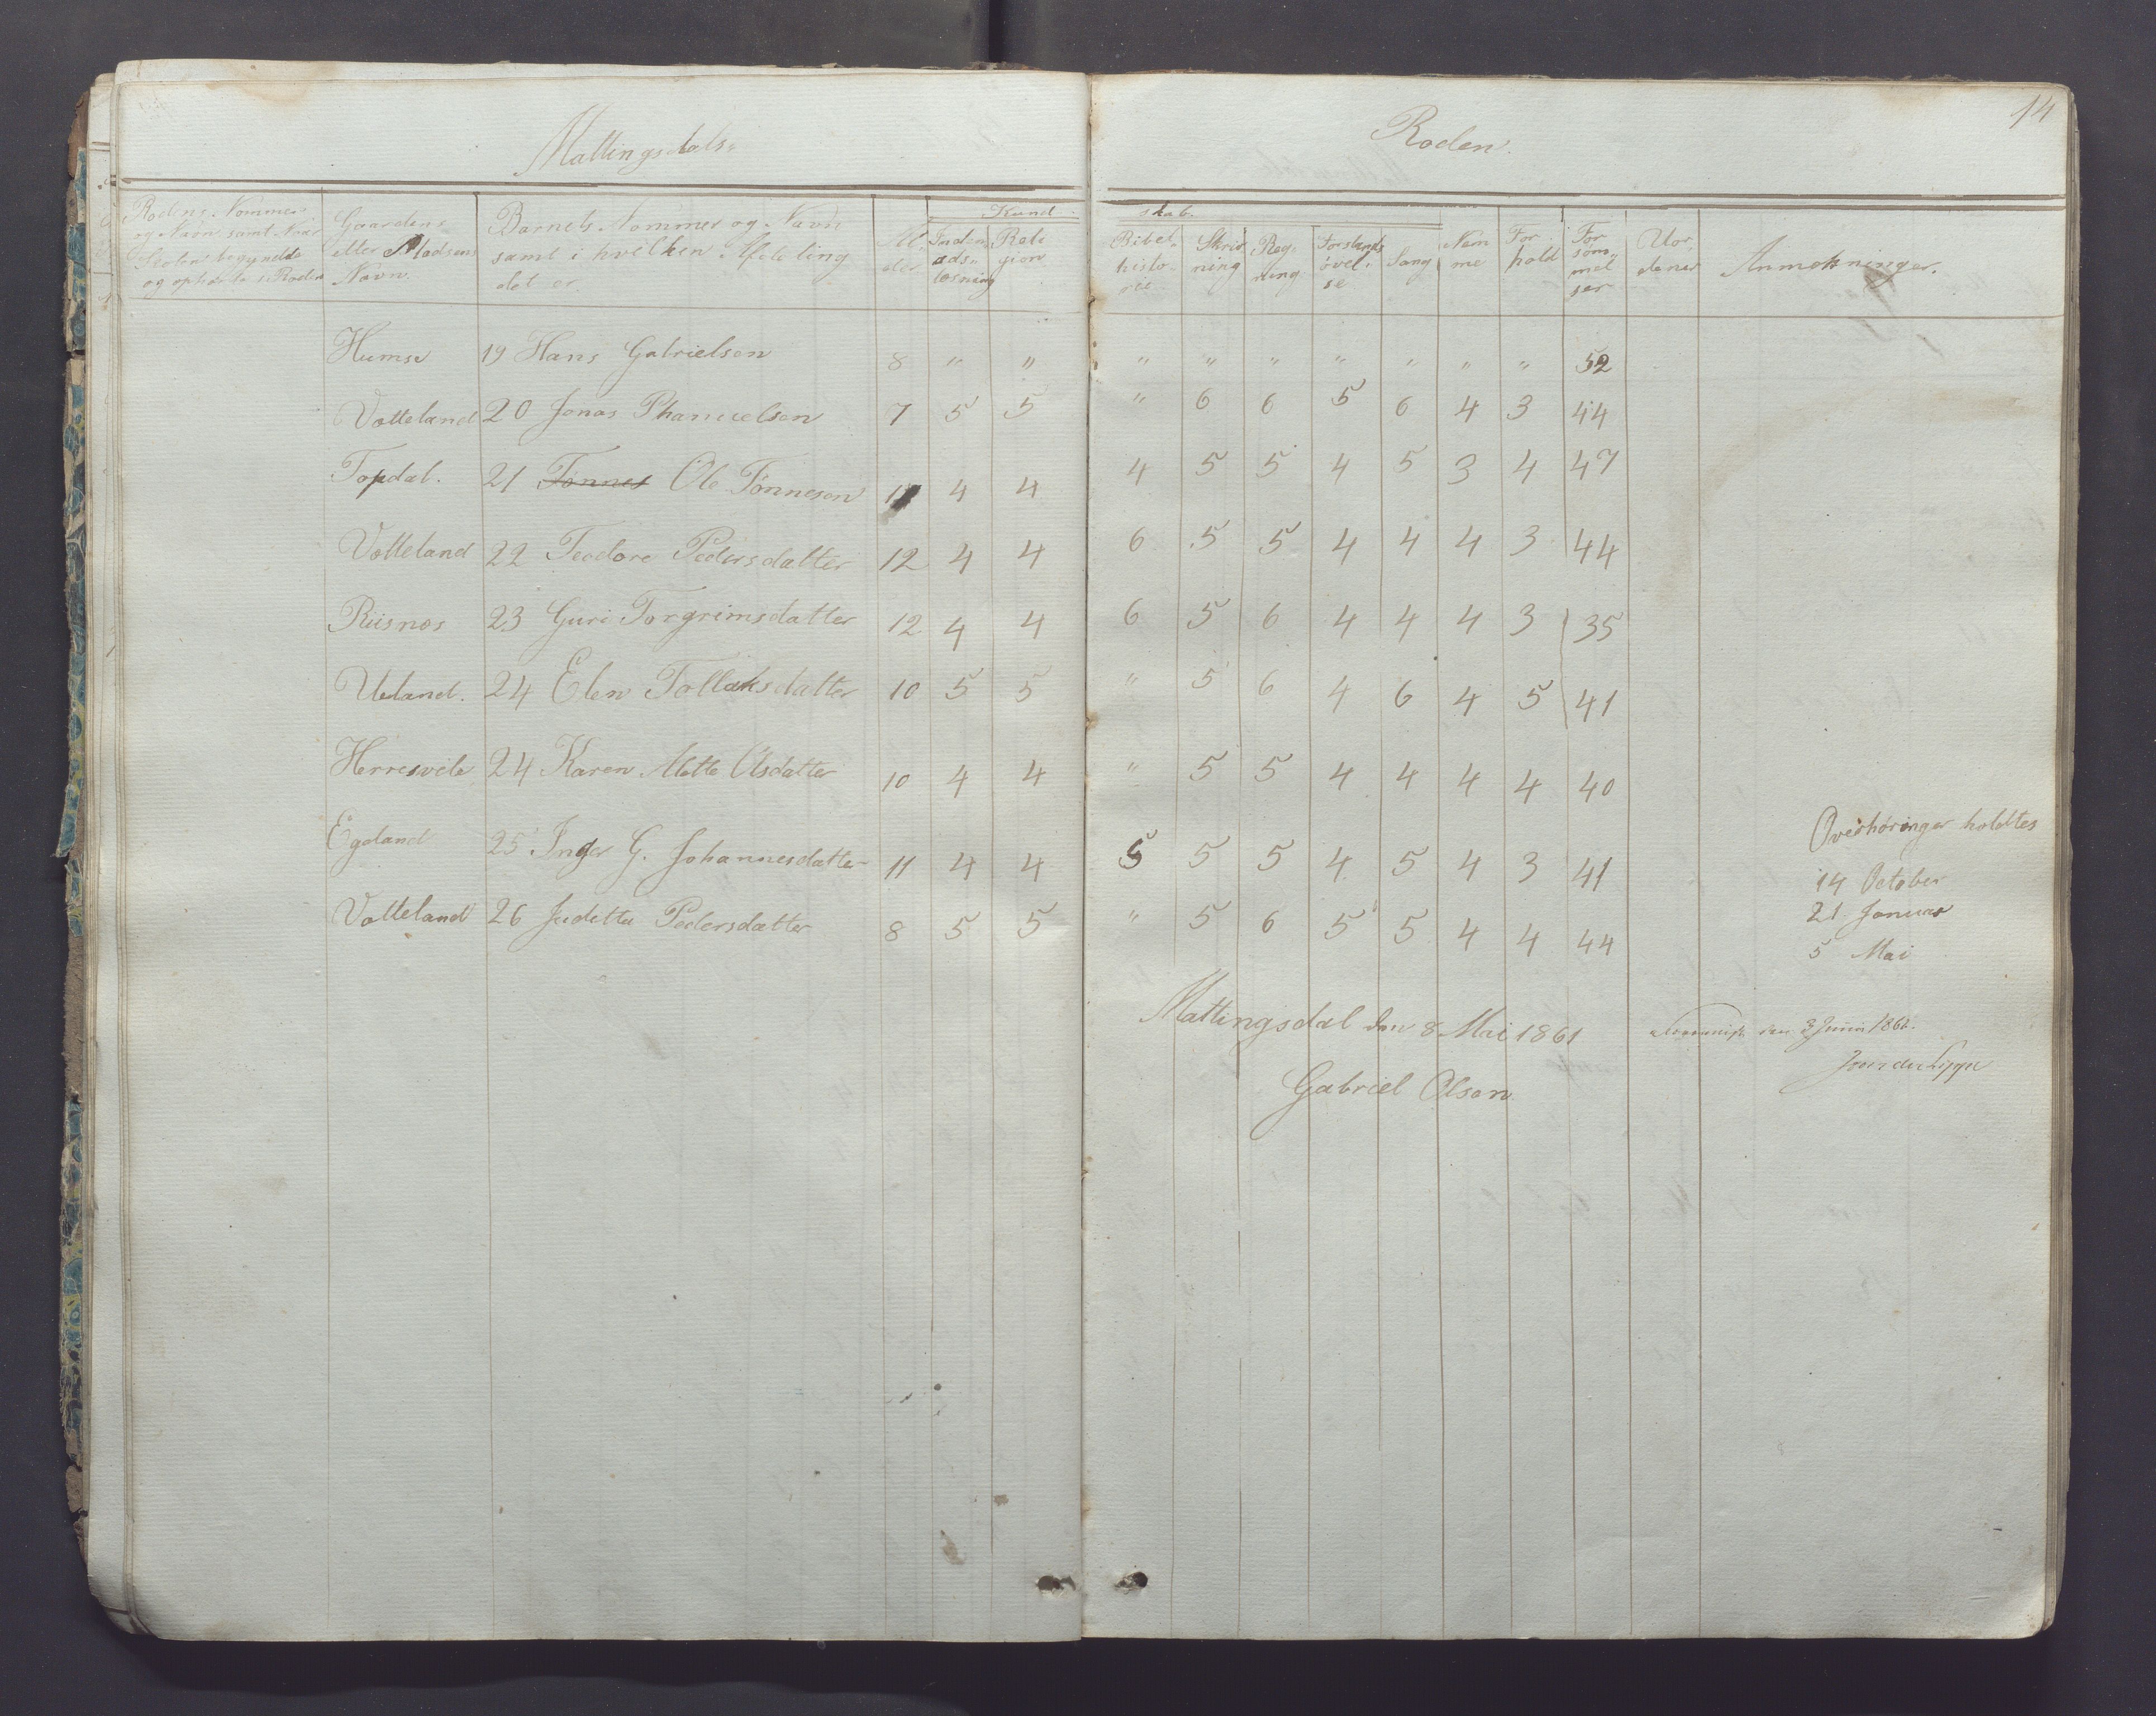 14
Mattingsdals- Roden.
Rodens Nommer og Navn samt Naar Skolen begyndte og ophørte i Roden
Gaardens eller Pladsens Navn.
Barnets Nommer og Navn samt i hvilken Afdeling det er.
Alder
Kundskab.
Indenadslæsning
Religion
Bibelhistorie
Skrivning
Regning
Forstandsøvelse
Sang
Nemme
Forhold
Forsømmelser
Uordener
Anmerkninger.
Humse 19 Hans Gabrielsen 8 " " " " " " " " " 52
Votteland 20 Jonas Phanuelsen 7 5 5 " 6 6 5 6 4 3 44
Topdal. 21 Tønnes Ole Tønnesen 11 4 4 4 5 5 4 5 3 4 47
Votteland 22 Teodore Pedersdatter 12 4 4 6 5 5 4 4 4 3 44
Riisnes 23 Guri Torgrimsdatter 12 4 4 6 5 6 4 4 4 3 35
Ueland. 24 Elen Tollaksdatter 10 5 5 " 5 6 4 6 4 5 41
Herresvele 24 Karen Mette Olsdatter 10 4 4 " 5 5 4 4 4 4 40
Egeland 25 Inger G. Johannesdatter 11 4 4 5 5 5 4 5 4 3 41
Votteland 26 Juditta Pedersdatter 8 5 5 " 5 6 5 5 4 4 44
Overhøringer holdtes
14 October
21 Januar
5 Mai
Mattingsdal den 8 Mai 1861
Gabriel Olsen
den 3 Juni 1861.